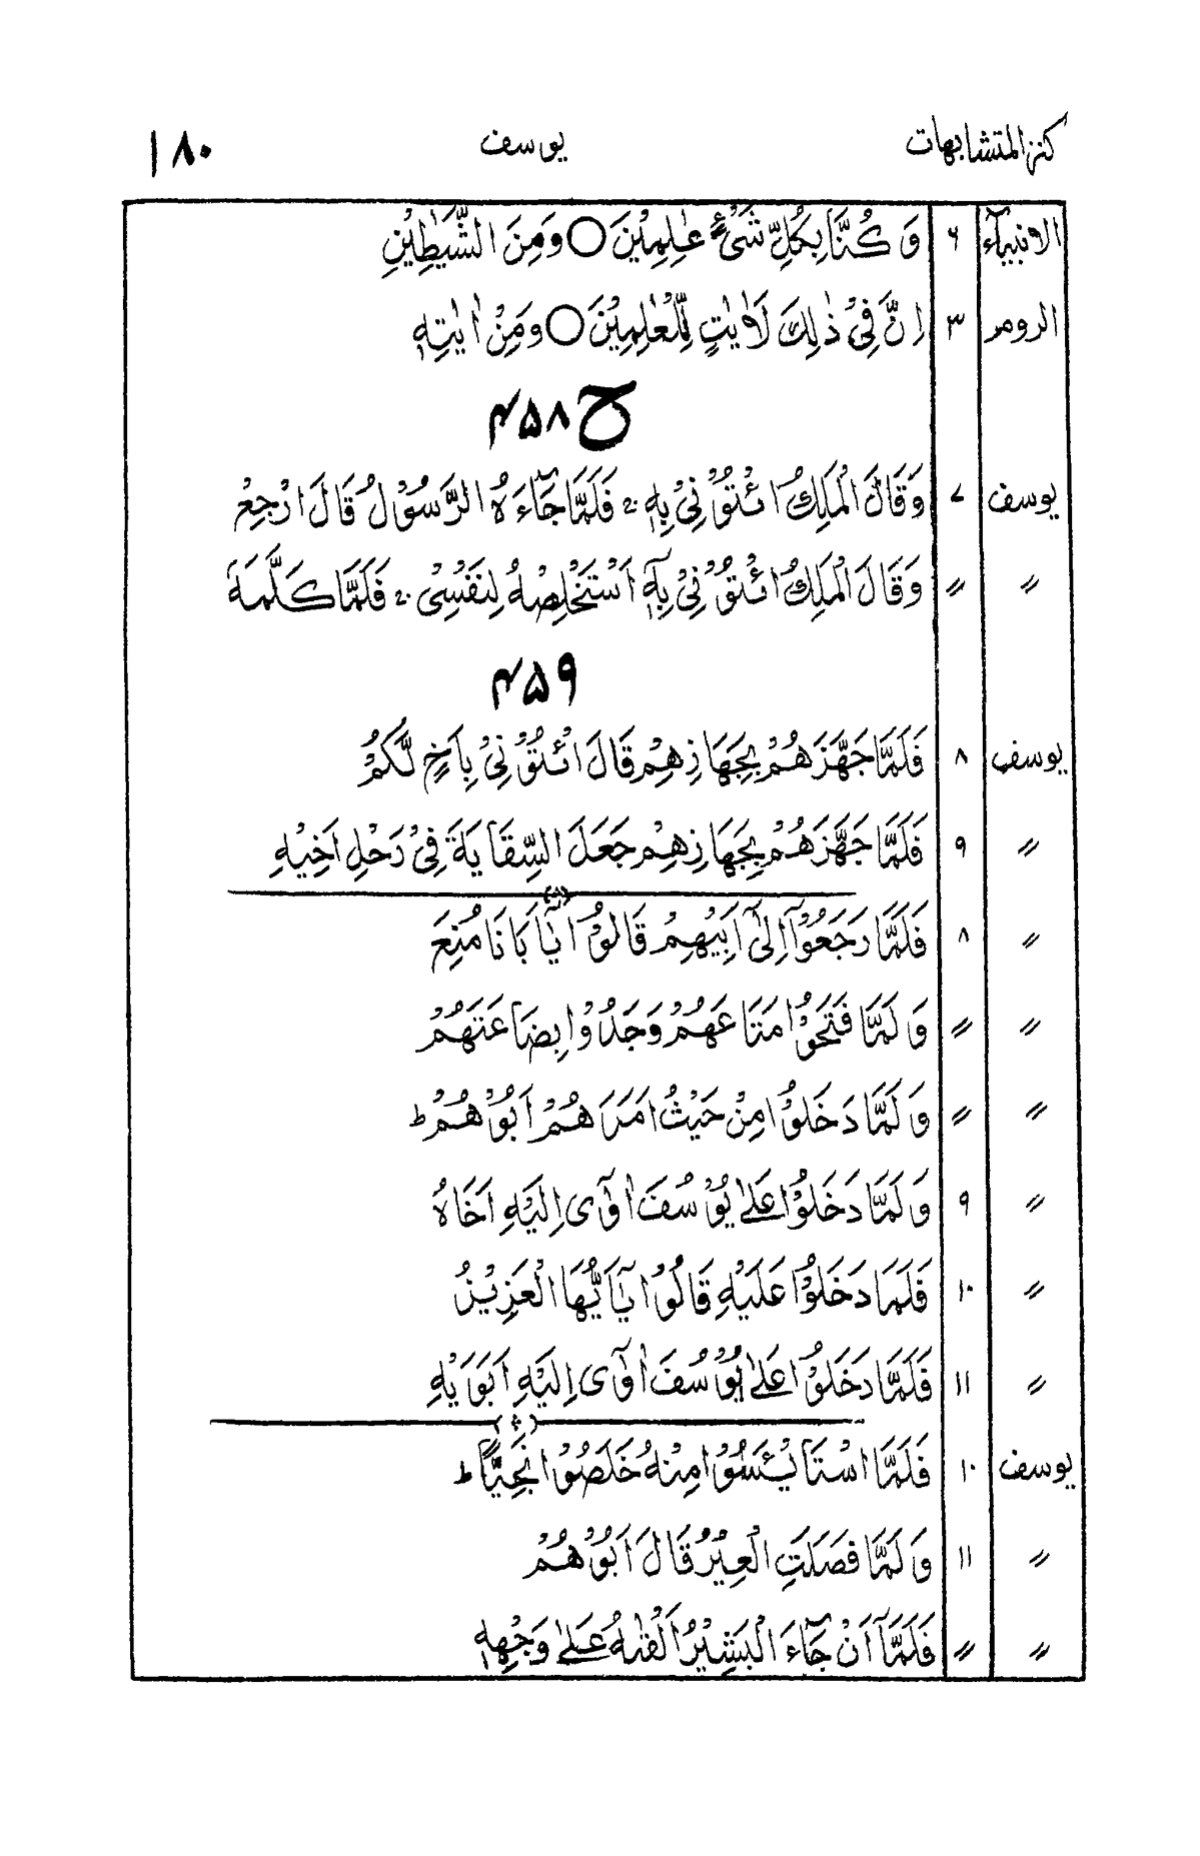 كنز المتشابهات يوسف ١٨٠
الانبيآء ٦ وَكُنَّا بِكُلِّ شَىْءٍ عٰلِمِيْنَ ○ وَمِنَ الشَّيٰطِيْنِ
الروم ٣ اِنَّ فِىْ ذٰلِكَ لَاٰيٰتٍ لِّلْعٰلِمِيْنَ ○ وَمِنْ اٰيٰتِهٖ
ح ۴۵۸
يوسف ٧ وَقَالَ الْمَلِكُ ائْتُوْنِىْ بِهٖ ۚ فَلَمَّا جَآءَهُ الرَّسُوْلُ قَالَ ارْجِعْ
〃 〃 وَقَالَ الْمَلِكُ ائْتُوْنِىْ بِهٖٓ اَسْتَخْلِصْهُ لِنَفْسِىْ ۚ فَلَمَّا كَلَّمَهٗ
۴۵۹
يوسف ٨ فَلَمَّا جَهَّزَهُمْ بِجَهَازِهِمْ قَالَ ائْتُوْنِىْ بِاَخٍ لَّكُمْ
〃 ٩ فَلَمَّا جَهَّزَهُمْ بِجَهَازِهِمْ جَعَلَ السِّقَايَةَ فِىْ رَحْلِ اَخِيْهِ
〃 ٨ فَلَمَّا رَجَعُوْٓا اِلٰٓى اَبِيْهِمْ قَالُوْا يٰٓاَبَانَا مُنِعَ
〃 〃 وَلَمَّا فَتَحُوْا مَتَاعَهُمْ وَجَدُوْا بِضَاعَتَهُمْ
〃 〃 وَلَمَّا دَخَلُوْا مِنْ حَيْثُ اَمَرَهُمْ اَبُوْهُمْ ط
〃 ٩ وَلَمَّا دَخَلُوْا عَلٰى يُوْسُفَ اٰوٰٓى اِلَيْهِ اَخَاهُ
〃 ١٠ فَلَمَّا دَخَلُوْا عَلَيْهِ قَالُوْا يٰٓاَيُّهَا الْعَزِيْزُ
〃 ١١ فَلَمَّا دَخَلُوْا عَلٰى يُوْسُفَ اٰوٰٓى اِلَيْهِ اَبَوَيْهِ
يوسف ١٠ فَلَمَّا اسْتَايْـَٔسُوْا مِنْهُ خَلَصُوْا نَجِيًّا ط
〃 ١١ وَلَمَّا فَصَلَتِ الْعِيْرُ قَالَ اَبُوْهُمْ
〃 〃 فَلَمَّآ اَنْ جَآءَ الْبَشِيْرُ اَلْقٰىهُ عَلٰى وَجْهِهٖ